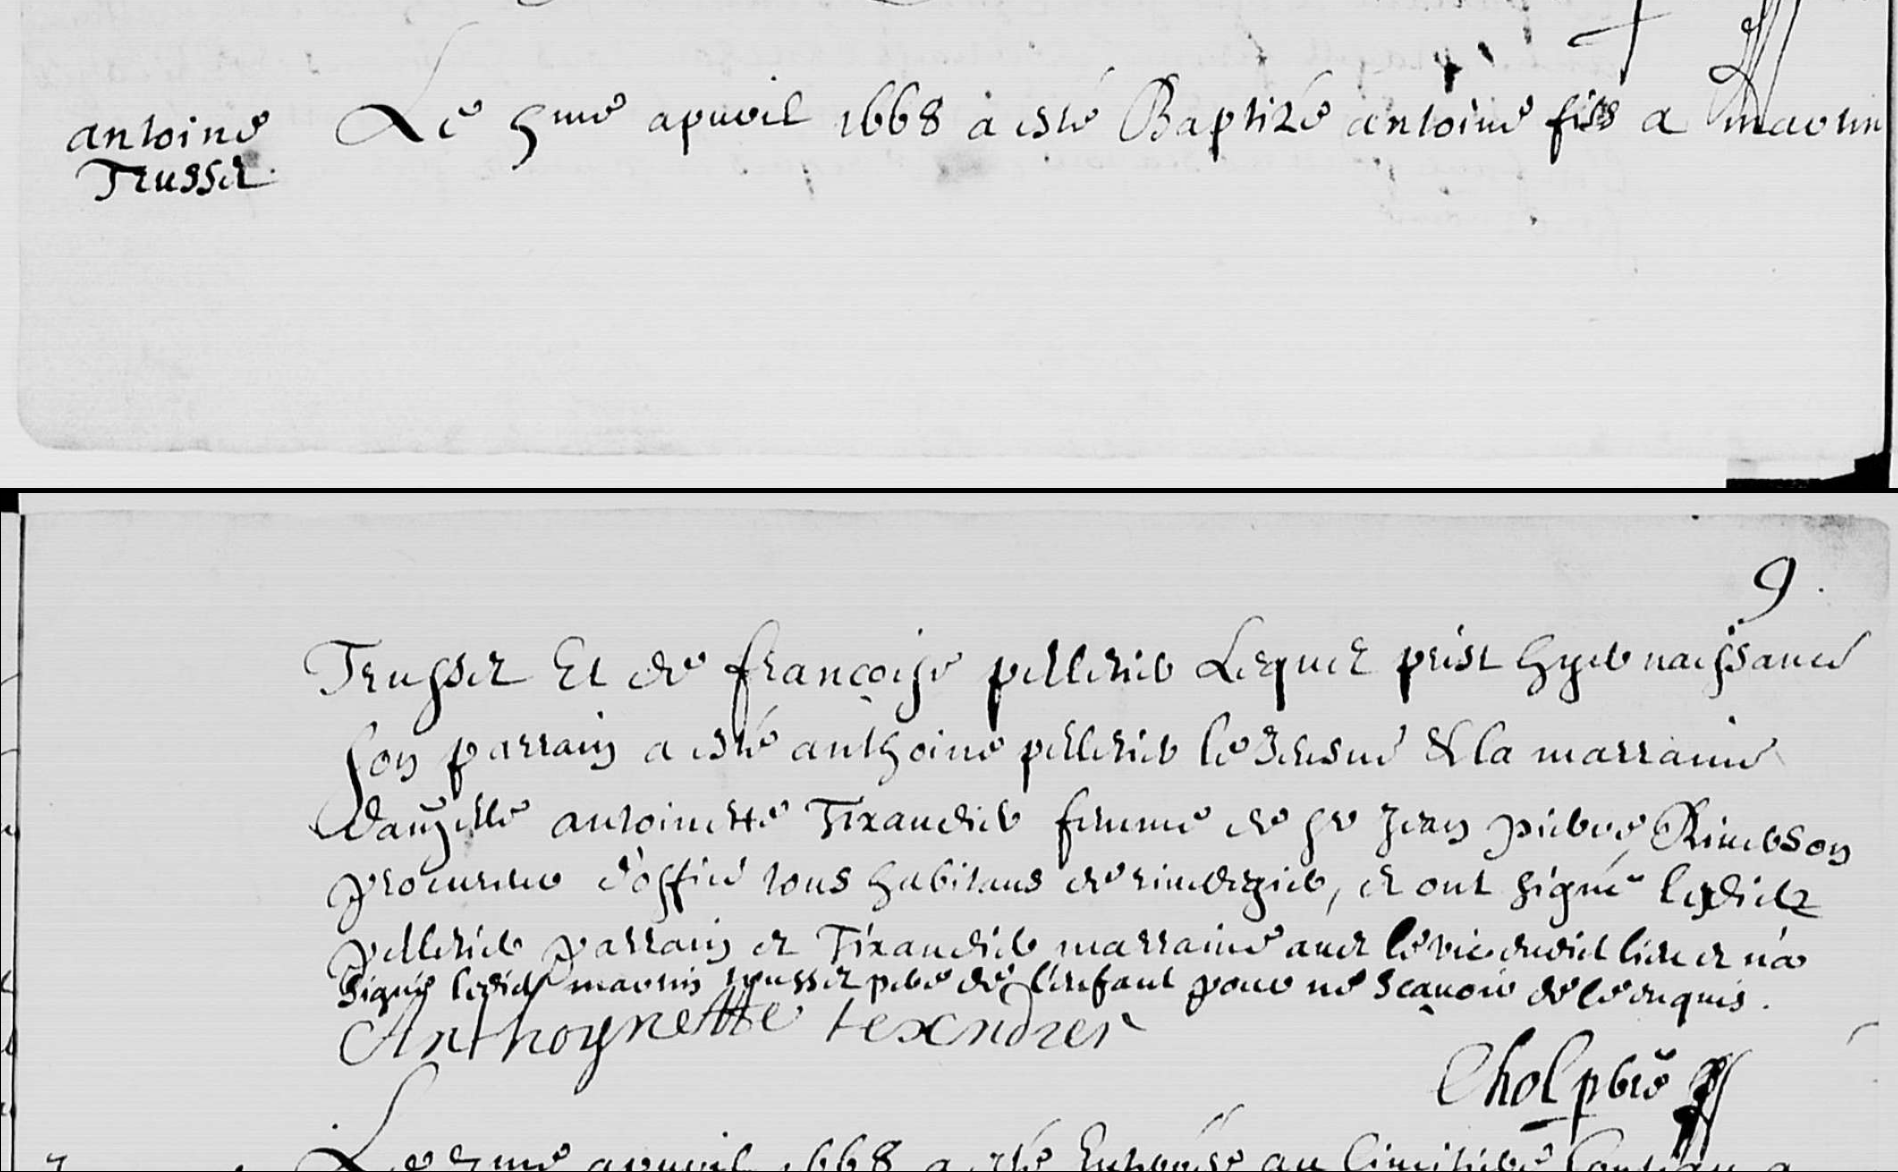 antoine
Trusset
Le 5me apuril 1668 a esté Baptizé antoine fils a martin
9.
Trusset Et de françoise pelletier Lequel prist hyer naissance
son parrain a esté anthoine pelletier le Jeusne & la marraine
dauzelle antoinette Texandier femme de sr Jean pierre
procureur d'office tous habitans de, et ont signé lesdictz
pelletier parrain et Texandier marraine auec le et n'a
signé ledict martin trusset pere de l'enfant pour ne scauoir de ce enquis.
Anthoynette texndier
Chol pbre
Le 7me apuril 1668 a esté Enterrée au Cimitiere